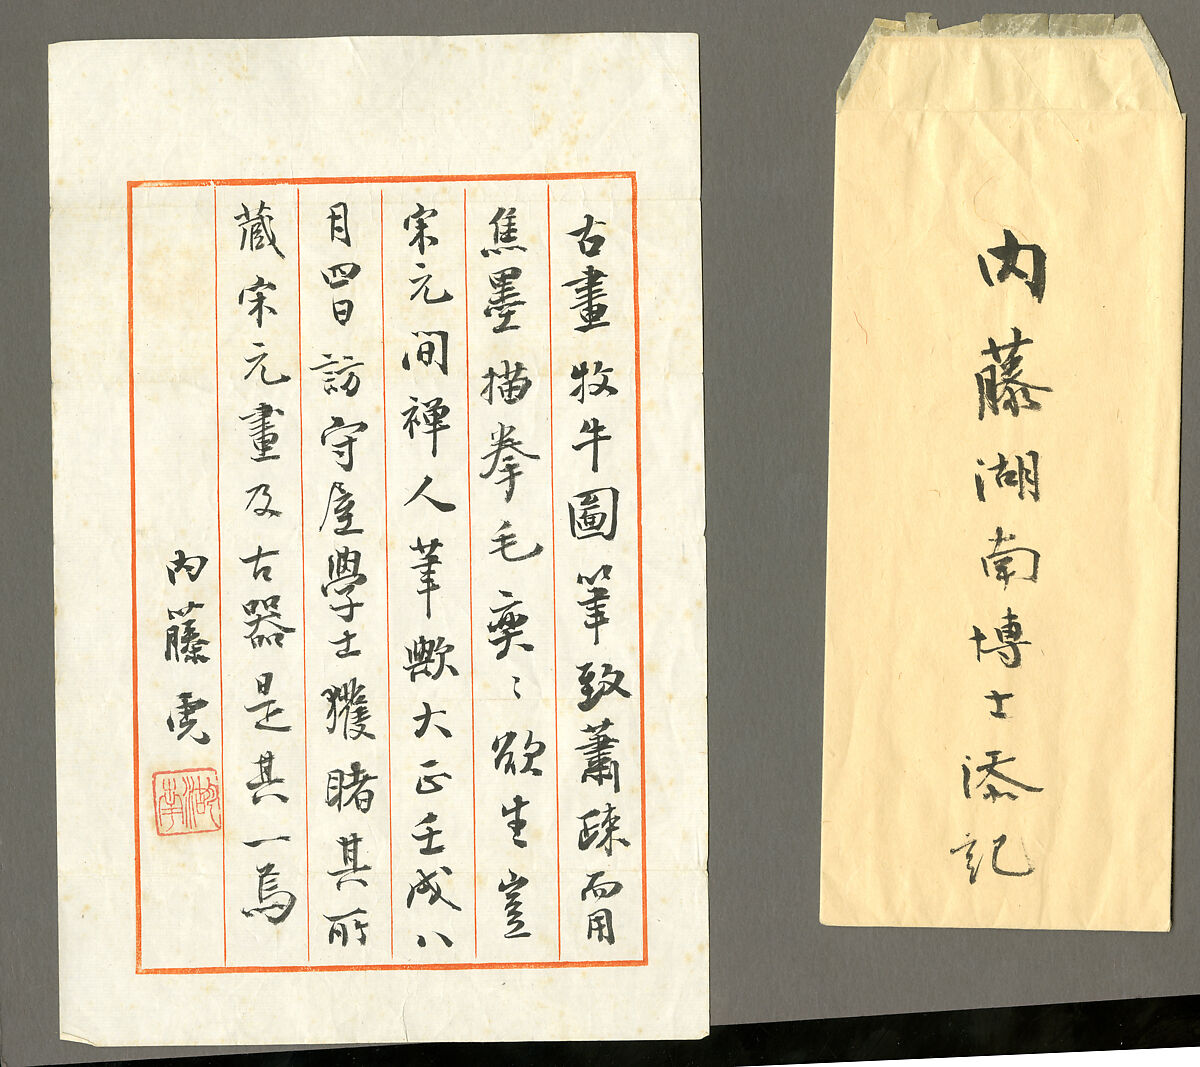 古畫牧牛圖筆致蕭疎而用
焦墨描拳毛奕〻欲生豈
宋元間禅人筆歟大正壬戌八
月四日訪守屋學士獲睹其所
藏宋元畫及古器是其一焉
内藤虎
湖南
内藤湖南博士添記